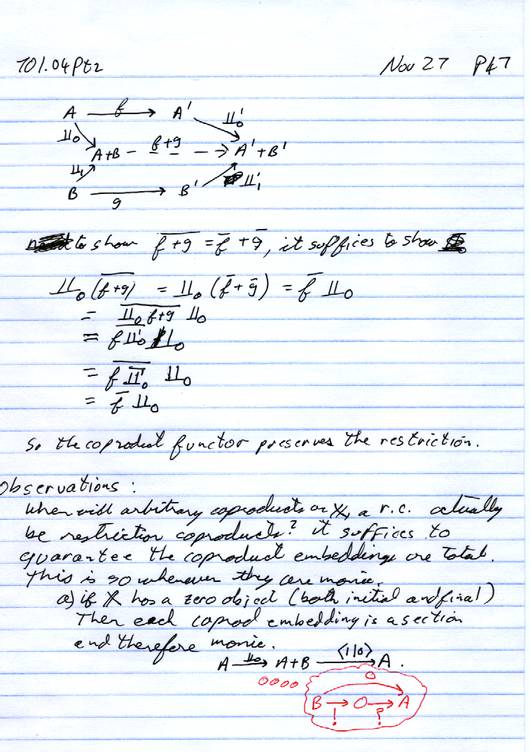 701.04Pt2 Nov 27 Pg7
A f A'
⊥⊥₀ ⊥⊥₀'
A+B – f+g → A'+B'
⊥⊥₁ ⊥⊥₁'
B g B'
to show \overline{f+g} = \overline{f} + \overline{g}, it suffices to show
⊥⊥₀ (\overline{f+g}) = ⊥⊥₀ (\overline{f}+\overline{g}) = \overline{f} ⊥⊥₀
= \overline{⊥⊥₀ f+g} ⊥⊥₀
= f ⊥⊥₀' ⊥⊥₀
= \overline{f ⊥⊥₀'} ⊥⊥₀
= \overline{f} ⊥⊥₀
So the coproduct functor preserves the restriction.
Observations:
when will arbitrary coproducts in X, a r.c. actually
be restriction coproducts? it suffices to
guarantee the coproduct embeddings are total.
This is so whenever they are monic.
a) if X has a zero object (both initial and final)
Then each coprod embedding is a section
and therefore monic.
A ⊥⊥₀ → A+B ⟨1|0⟩ → A.
0000 0
B → 0 → A
! ?